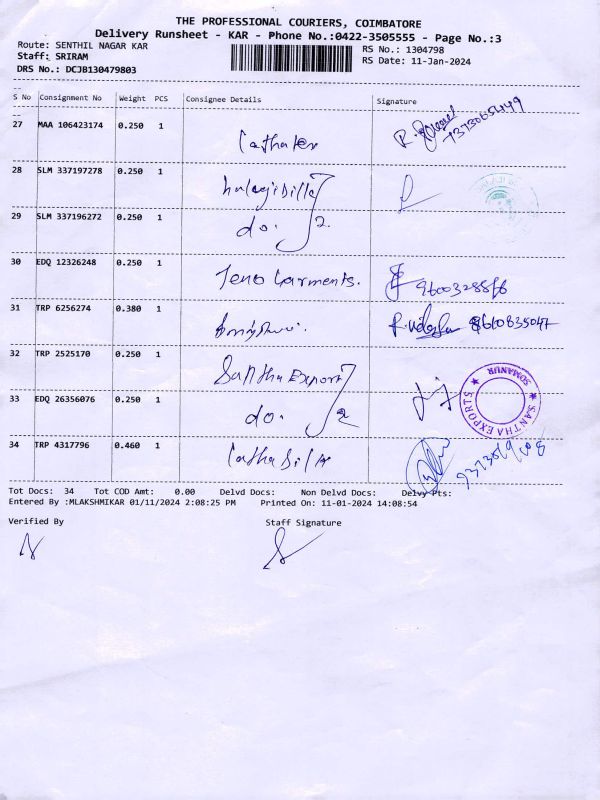 THE PROFESSIONAL COURIERS, COIMBATORE
Delivery Runsheet - KAR - Phone No.:0422-3505555 - Page No.:3
Route: SENTHIL NAGAR KAR RS No.: 1304798
Staff: SRIRAM RS Date: 11-Jan-2024
DRS No.: DCJB130479803
S No Consignment No Weight PCS Consignee Details Signature
27 MAA 106423174 0.250 1
28 SLM 337197278 0.250 1
29 SLM 337196272 0.250 1 do. 2
30 EDQ 12326248 0.250 1 Jeno Garments.
31 TRP 6256274 0.380 1 8610835047
32 TRP 2525170 0.250 1 Santha Export
33 EDQ 26356076 0.250 1 do. 2 SANTHA EXPORTS SOMANUR
34 TRP 4317796 0.460 1
Tot Docs: 34 Tot COD Amt: 0.00 Delvd Docs: Non Delvd Docs: Delvy Pts:
Entered By :MLAKSHMIKAR 01/11/2024 2:08:25 PM Printed On: 11-01-2024 14:08:54
Verified By Staff Signature